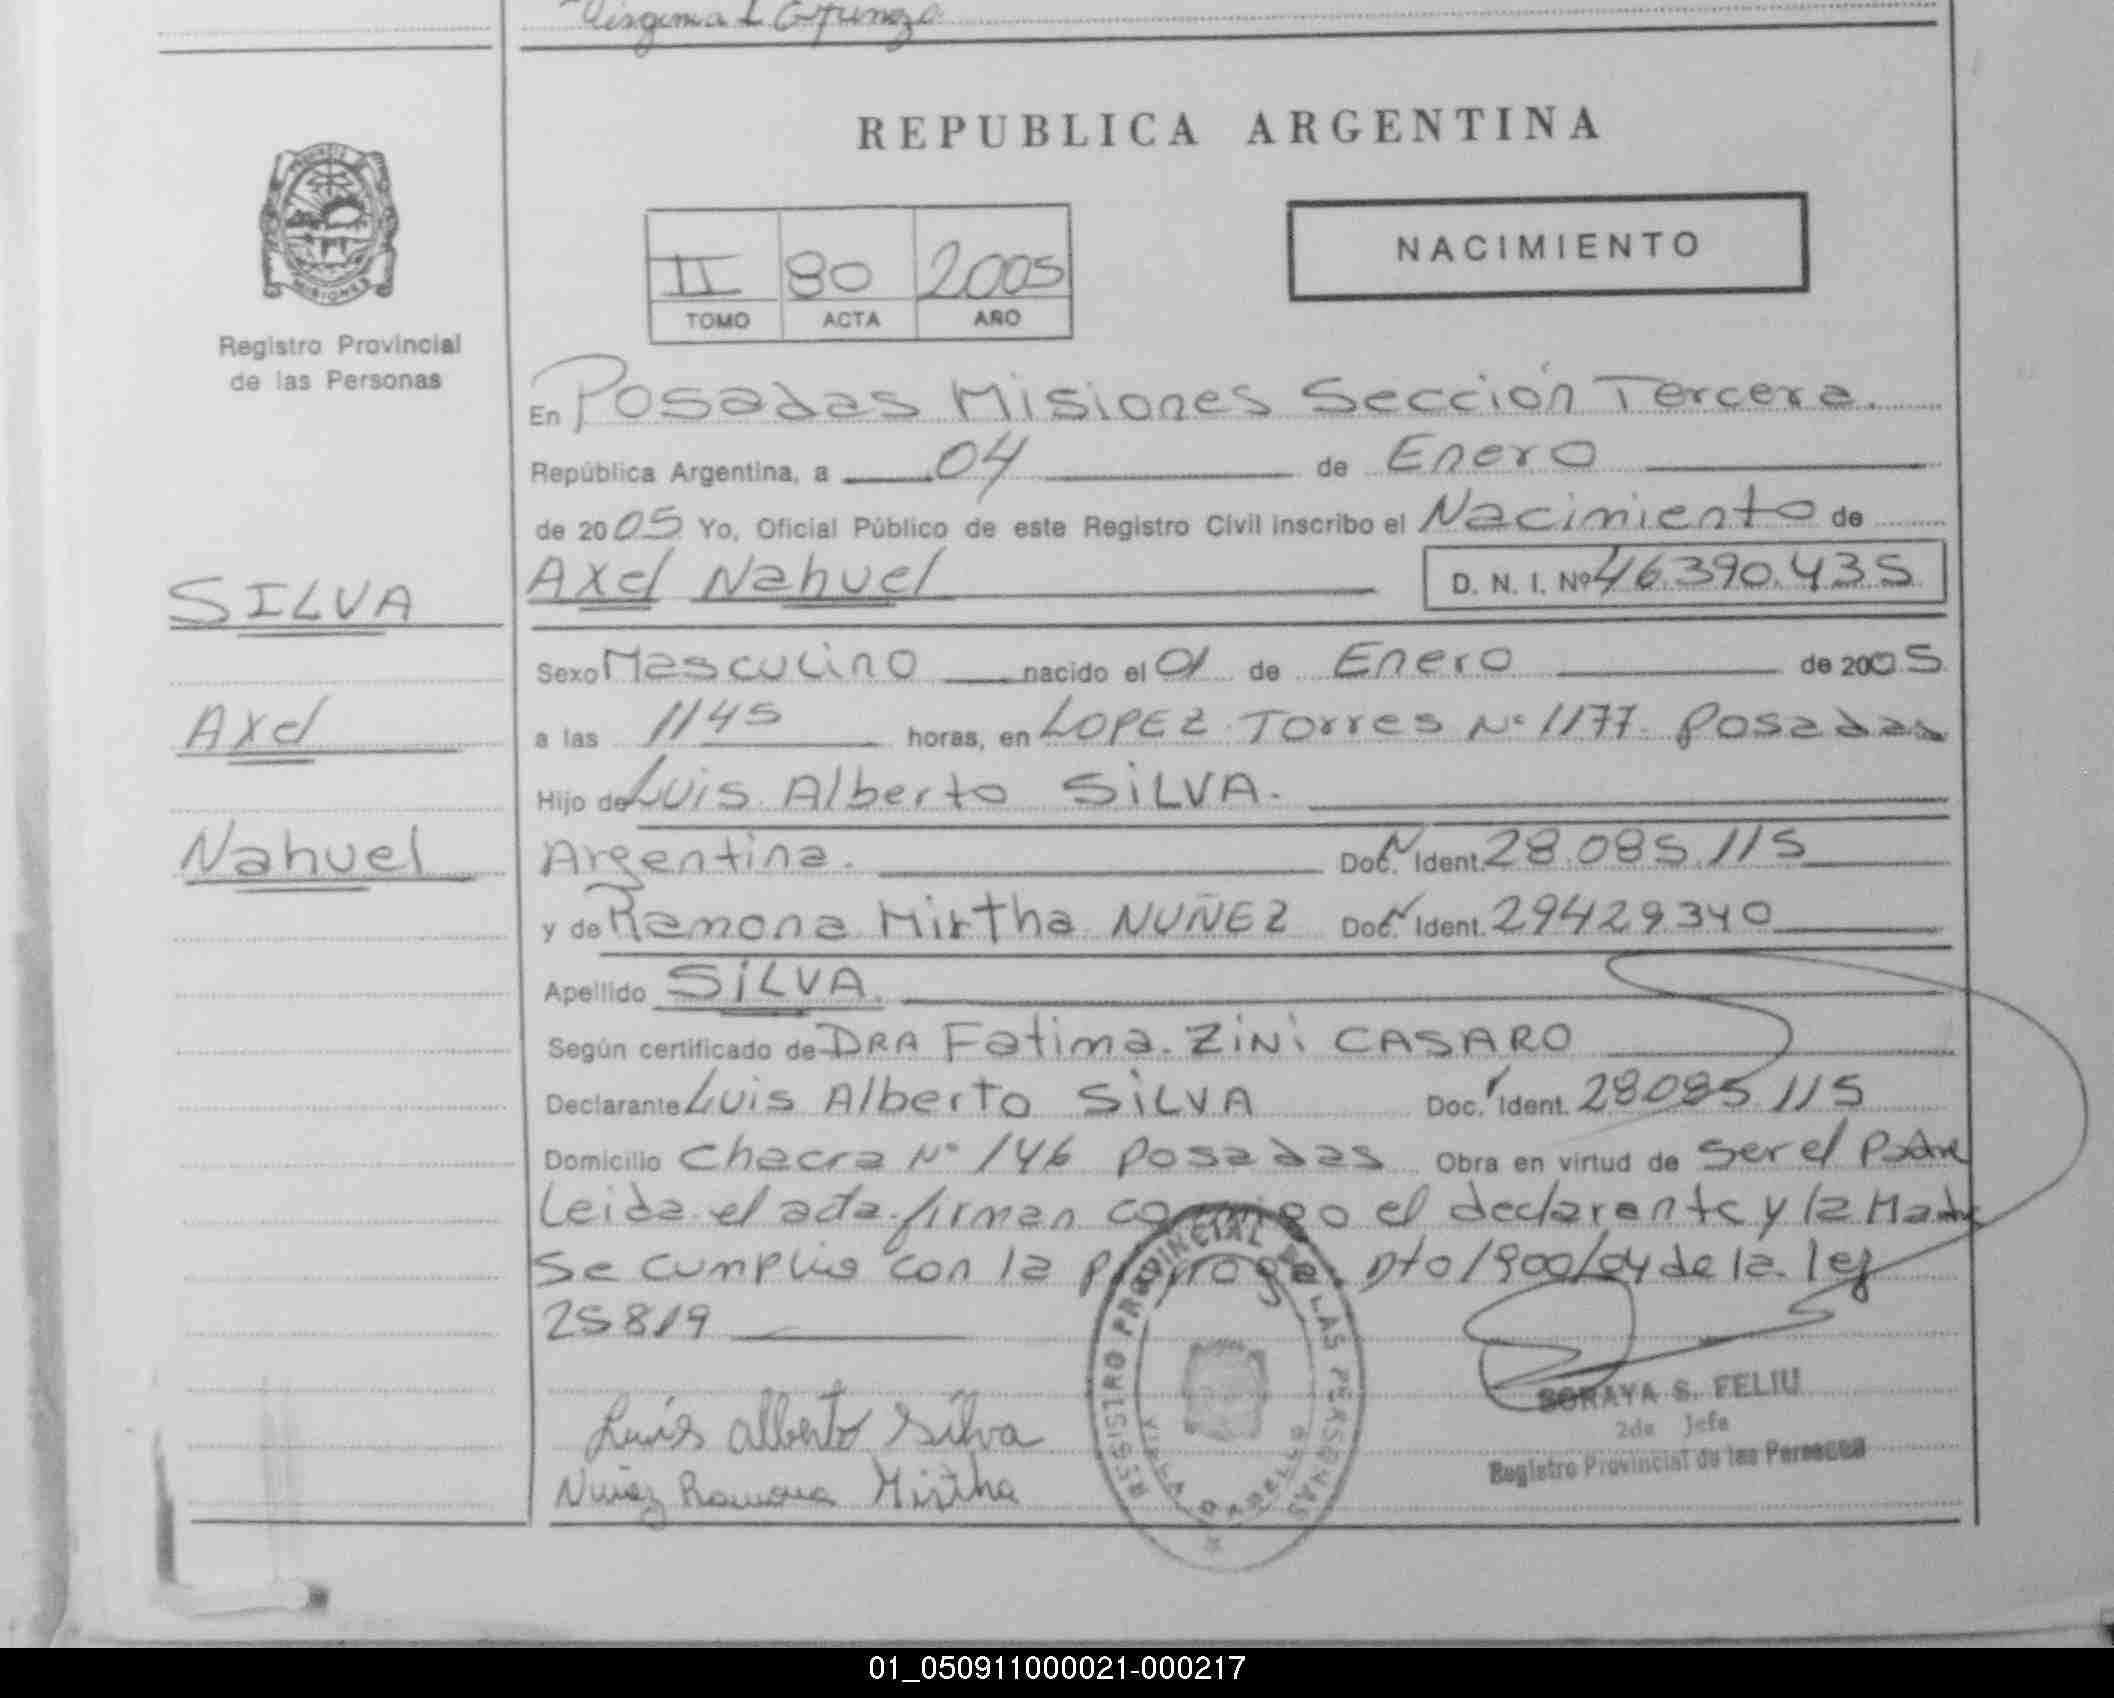 Virginia L
REPUBLICA ARGENTINA
PROVINCIA DE
MISIONES
Registro Provincial
de las Personas
II 80 2005
TOMO ACTA AÑO
NACIMIENTO
En Posadas Misiones Sección Tercera.
República Argentina, a 04 de Enero
de 2005 Yo, Oficial Público de este Registro Civil inscribo el Nacimiento de
SILVA Axel Nahuel D. N. I. Nº 46.390.435
Sexo Masculino nacido el 01 de Enero de 2005
Axel a las 1145 horas, en LOPEZ Torres Nº 1177. Posadas
Hijo de Luis Alberto SILVA.
Nahuel Argentina. Doc. N Ident. 28.085.115
y de Ramona Mirtha NUÑEZ Doc. N Ident. 29429340
Apellido SILVA.
Según certificado de DRA Fatima. ZINI CASARO
Declarante Luis Alberto SILVA Doc. Ident. 28085115
Domicilio Chacra Nº 146 Posadas Obra en virtud de Ser el Padre
Leida el acta firman conmigo el declarante y la Madre
Se cumplio con la prorroga Dto 1900/04 de la ley
25819
Luis Alberto Silva
Nuñez Ramona Mirtha
REGISTRO PROVINCIAL DE LAS PERSONAS
SORAYA S. FELIU
2da Jefa
Registro Provincial de las Personas
01_050911000021-000217